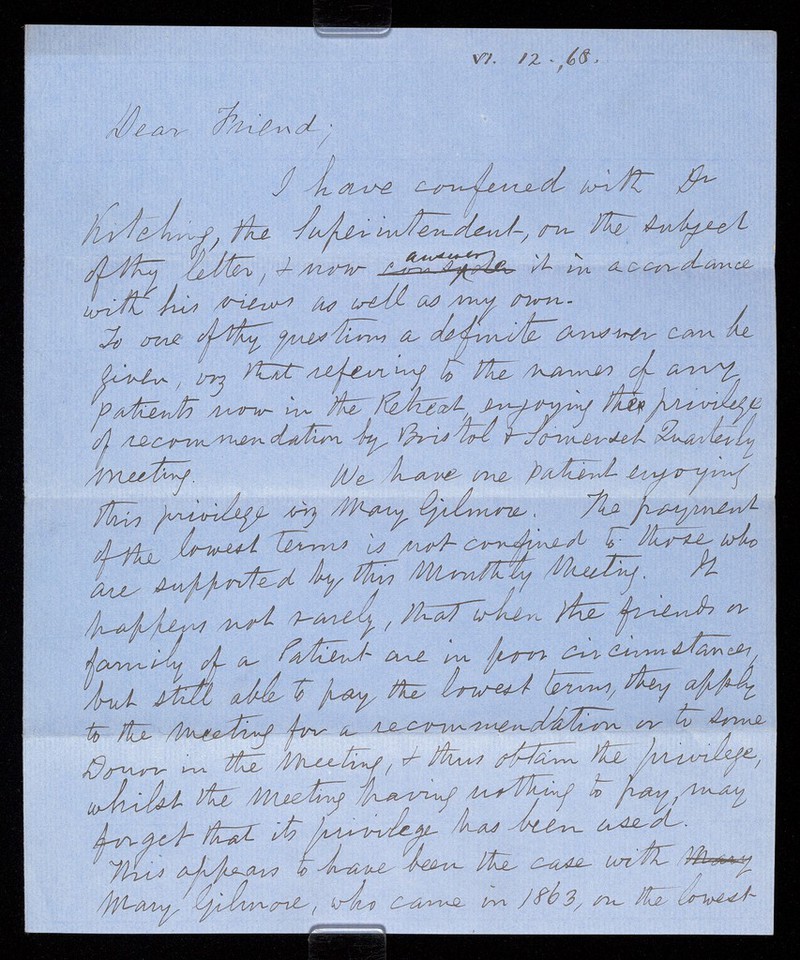 VI. 12., 68.
Dear Friend;
I have conferred with Dr
Kitching, the Superintendent, on the subject
of thy letter, & now answer it in accordance
with his views as well as my own.
To one of thy questions a definite answer can be
given, viz that refering to the names of any
patients now in the Retreat, enjoying the privilege
of recommendation by Bristol & Somerset Quarterly
meeting. We have one patient enjoying
this privilege viz Mary Gilmore. The payment
of the lowest terms is not confined to those who
are supported by this Monthly Meeting. It
happens not rarely, that when the friends or
family of a Patient are in poor circumstances,
but still able to pay the lowest terms, they apply
to the meeting for a recommendation or to some
Donor in the Meeting, & thus obtain the privilege,
whilst the meeting having nothing to pay, may
forget that its privilege has been used.
This appears to have been the case with Mary
Mary Gilmore, who came in 1863, on the lowest